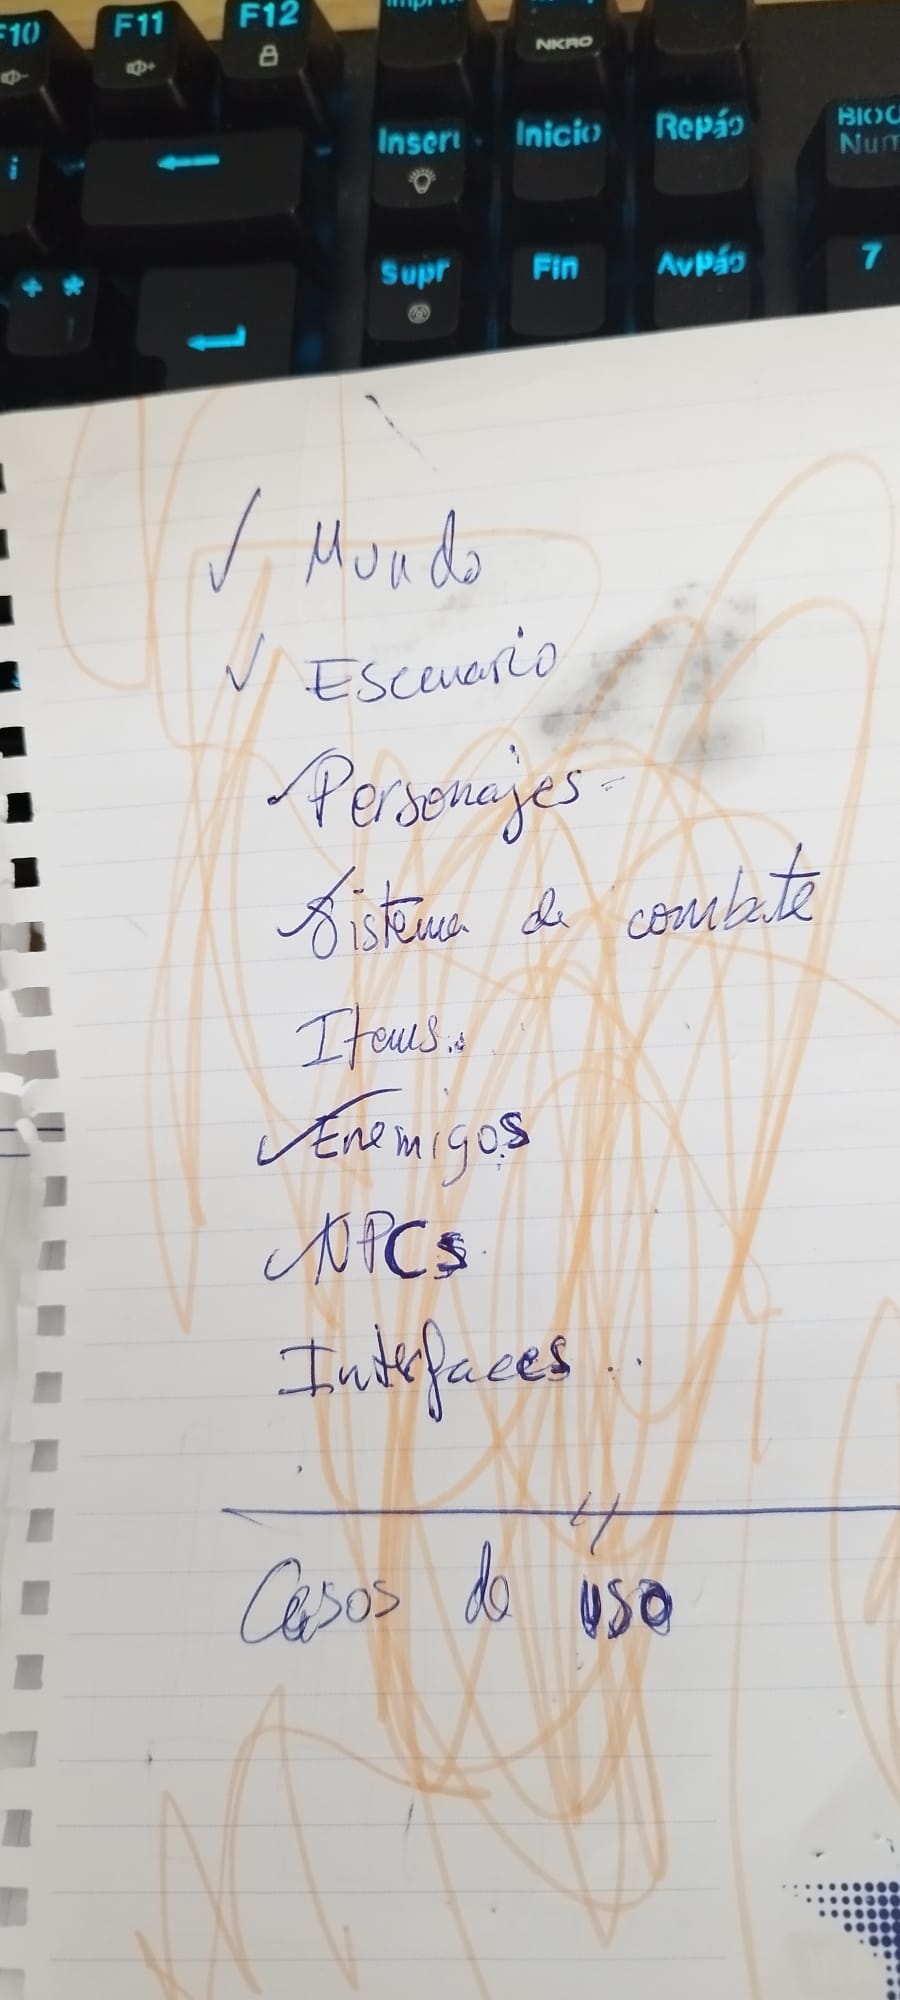 F10 F11 F12
NKRO
Insert Inicio RePág
Supr Fin AvPág 7
+ *
Bloq
Num
✓ Mundo
✓ Escenario
✓ Personajes
✓ Sistema de combate
Items..
✓ Enemigos
✓ NPCs
Interfaces ..
Casos de uso